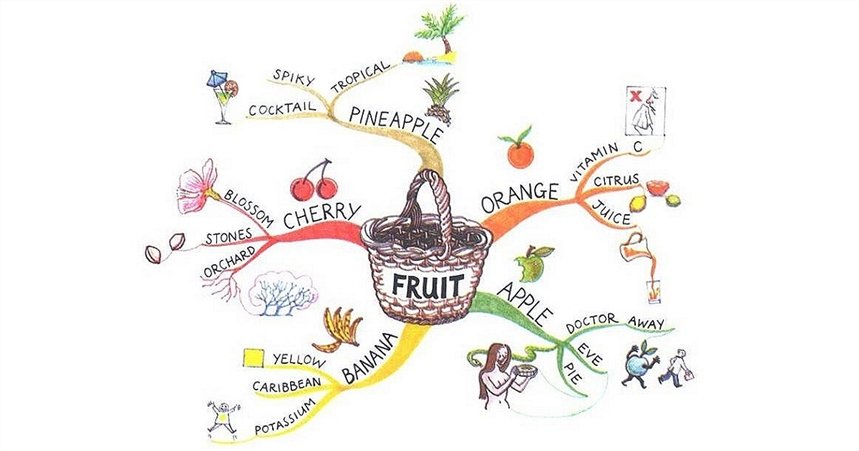 FRUIT
PINEAPPLE
SPIKY
TROPICAL
COCKTAIL
ORANGE
VITAMIN C
CITRUS
JUICE
APPLE
DOCTOR AWAY
EVE
PIE
BANANA
YELLOW
CARIBBEAN
POTASSIUM
CHERRY
BLOSSOM
STONES
ORCHARD